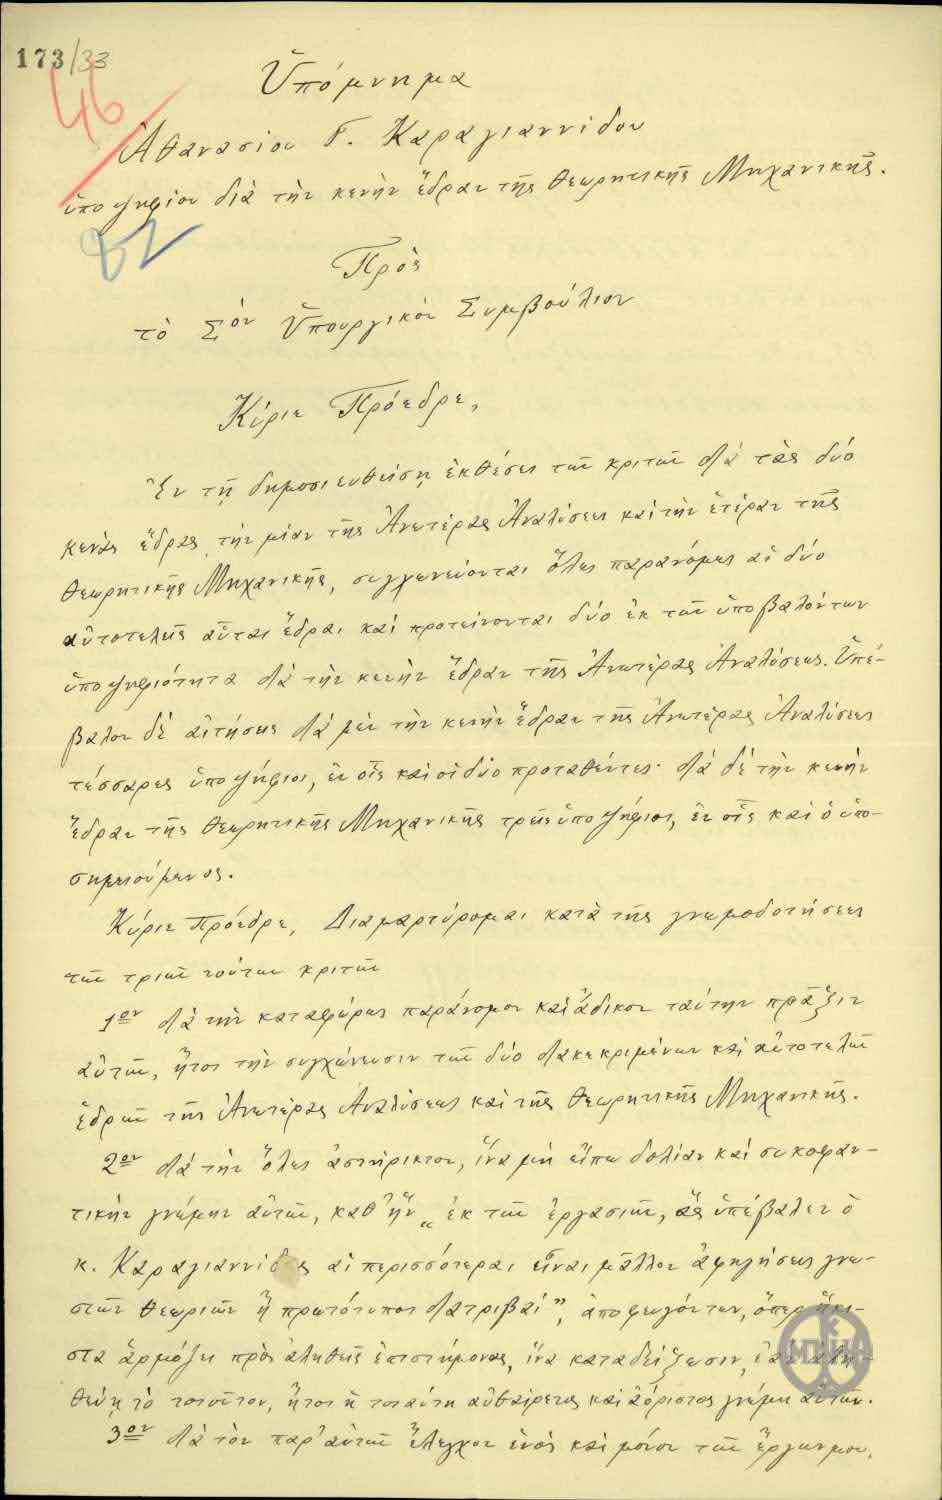 173/33
46
Ὑπόμνημα
Ἀθανασίου Γ. Καραγιαννίδου
ὑποψηφίου διὰ τὴν κενὴν ἕδραν τῆς Θεωρητικῆς Μηχανικῆς.
82
Πρὸς
τὸ Σὸν Ὑπουργικὸν Συμβούλιον
Κύριε Πρόεδρε,
Ἐν τῇ δημοσιευθείσῃ ἐκθέσει τῶν κριτῶν διὰ τὰς δύο
κενὰς ἕδρας, τὴν μίαν τῆς Ἀνωτέρας Ἀναλύσεως καὶ τὴν ἑτέραν τῆς
Θεωρητικῆς Μηχανικῆς, συγχωνεύονται ὅλως παρανόμως αἱ δύο
αὐτοτελεῖς αὗται ἕδραι καὶ προτείνονται δύο ἐκ τῶν ὑποβαλόντων
ὑποψηφιότητα διὰ τὴν κενὴν ἕδραν τῆς Ἀνωτέρας Ἀναλύσεως. Ὑπέ-
βαλον δὲ αἰτήσεις διὰ μὲν τὴν κενὴν ἕδραν τῆς Ἀνωτέρας Ἀναλύσεως
τέσσαρες ὑποψήφιοι, ἐν οἷς καὶ οἱ δύο προταθέντες· διὰ δὲ τὴν κενὴν
ἕδραν τῆς Θεωρητικῆς Μηχανικῆς τρεῖς ὑποψήφιοι, ἐν οἷς καὶ ὁ ὑπο-
σημειούμενος.
Κύριε Πρόεδρε, Διαμαρτύρομαι κατὰ τῆς γνωμοδοτήσεως
τῶν τριῶν τούτων κριτῶν
1ον διὰ τὴν καταφώρως παράνομον καὶ ἄδικον ταύτην πρᾶξιν
αὐτῶν, ἤτοι τὴν συγχώνευσιν τῶν δύο διακεκριμένων καὶ αὐτοτελῶν
ἑδρῶν τῆς Ἀνωτέρας Ἀναλύσεως καὶ τῆς Θεωρητικῆς Μηχανικῆς.
2ον διὰ τὴν ὅλως ἀστήρικτον, ἵνα μὴ εἴπω δολίαν καὶ συκοφαν-
τικὴν γνώμην αὐτῶν, καθ' ἣν „ ἐκ τῶν ἐργασιῶν, ἃς ὑπέβαλεν ὁ
κ. Καραγιαννίδης αἱ περισσότεραι εἶναι μᾶλλον ἀφηγήσεις γνω-
στῶν θεωριῶν ἢ πρωτότυποι διατριβαί ", ἀποφευγόντων, ὅπερ ἥκι-
στα ἁρμόζει πρὸς ἀληθεῖς ἐπιστήμονας, ἵνα καταδείξωσιν,
τὸ τοιοῦτον, ἤτοι ἡ τοιαύτη αὐθαίρετος καὶ ἀόριστος γνώμη αὐτῶν.
3ον διὰ τὸν παρ' αὐτῶν ἔλεγχον ἑνὸς καὶ μόνου τῶν ἔργων μου,